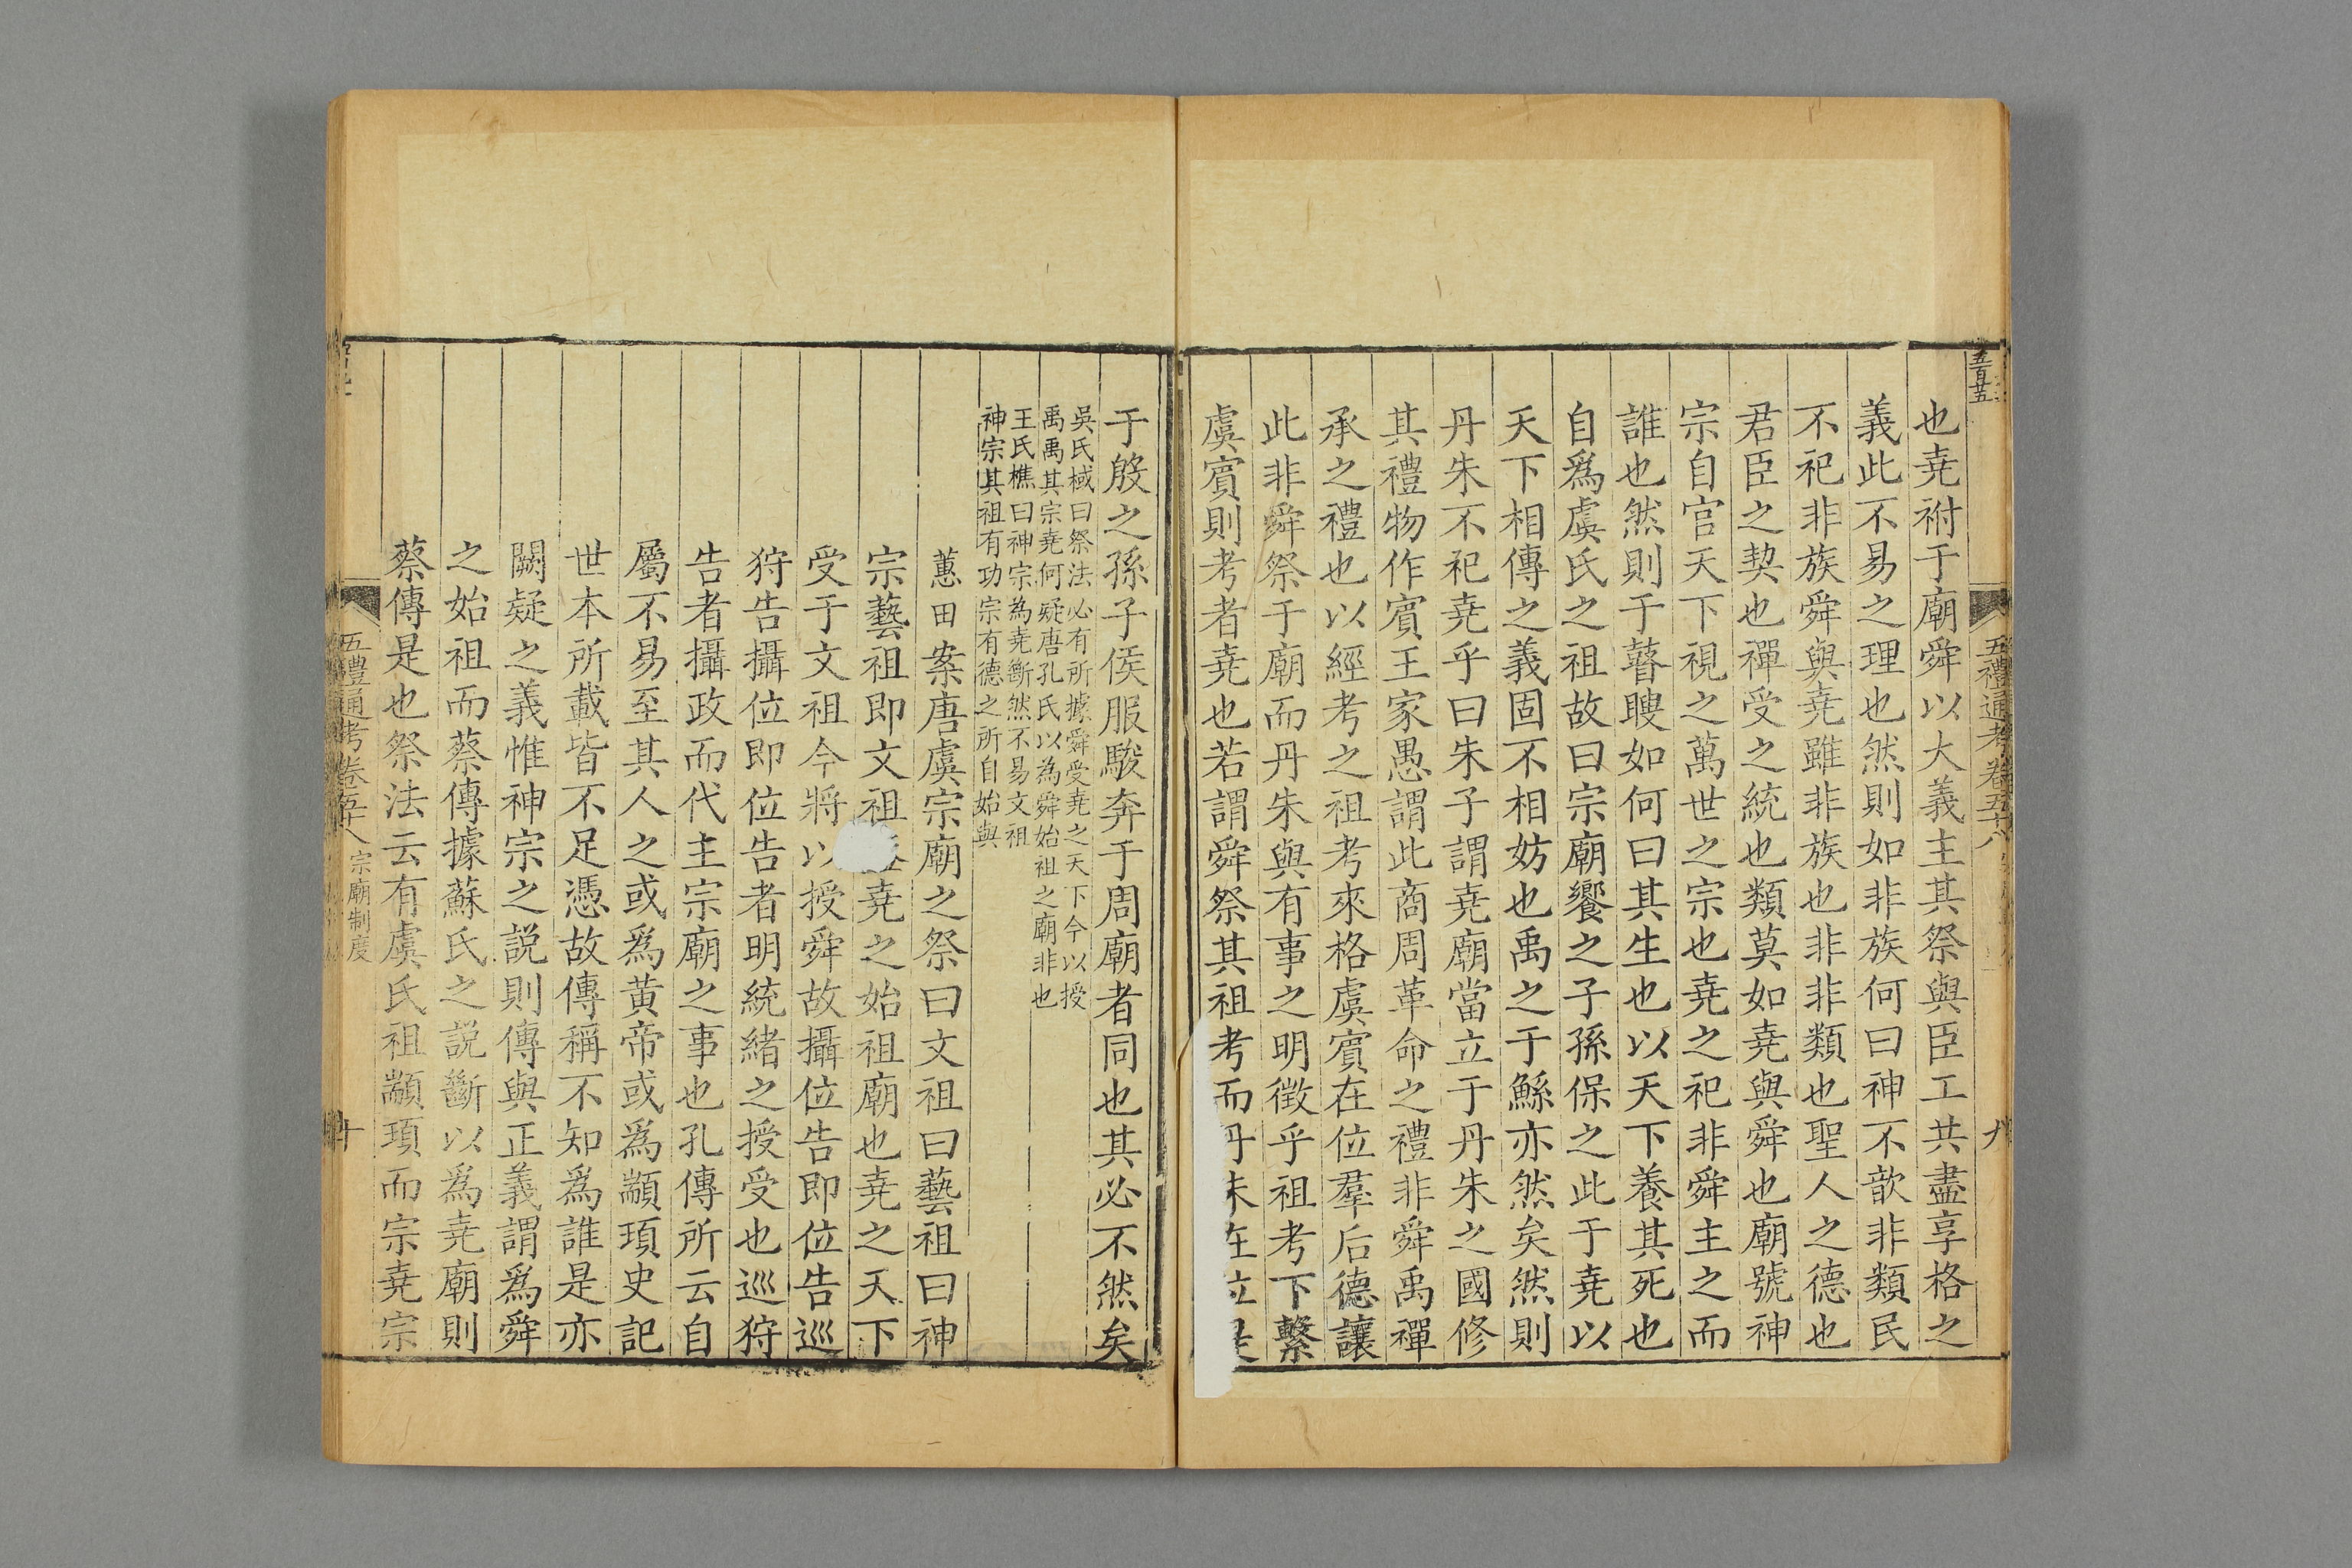 五百廿五
五禮通考卷五十八
九
也堯祔于廟舜以大義主其祭與臣工共盡享格之
義此不易之理也然則如非族何曰神不歆非類民
不祀非族舜與堯雖非族也非非類也聖人之德也
君臣之契也禪受之統也類莫如堯與舜也廟號神
宗自官天下視之萬世之宗也堯之祀非舜主之而
誰也然則于瞽瞍如何曰其生也以天下養其死也
自爲虞氏之祖故曰宗廟饗之子孫保之此于堯以
天下相傳之義固不相妨也禹之于鯀亦然矣然則
丹朱不祀堯乎曰朱子謂堯廟當立于丹朱之國修
其禮物作賓王家愚謂此商周革命之禮非舜禹禪
承之禮也以經考之祖考來格虞賓在位羣后德讓
此非舜祭于廟而丹朱與有事之明徵乎祖考下繫
虞賓則考者堯也若謂舜祭其祖考而丹朱在位是
于殷之孫子侯服駿奔于周廟者同也其必不然矣
吳氏棫曰祭法必有所據舜受堯之天下今以授
禹禹其宗堯何疑唐孔氏以為舜始祖之廟非也
王氏樵曰神宗為堯斷然不易文祖
神宗其祖有功宗有德之所自始與
蕙田案唐虞宗廟之祭曰文祖曰藝祖曰神
宗藝祖即文祖堯之始祖廟也堯之天下
受于文祖今將以授舜故攝位告即位告巡
狩告攝位即位告者明統緒之授受也巡狩
告者攝政而代主宗廟之事也孔傳所云自
屬不易至其人之或爲黃帝或爲顓頊史記
世本所載皆不足憑故傳稱不知爲誰是亦
闕疑之義惟神宗之説則傳與正義謂爲舜
之始祖而蔡傳據蘇氏之説斷以爲堯廟則
蔡傳是也祭法云有虞氏祖顓頊而宗堯宗
五禮通考卷五十八 宗廟制度
十